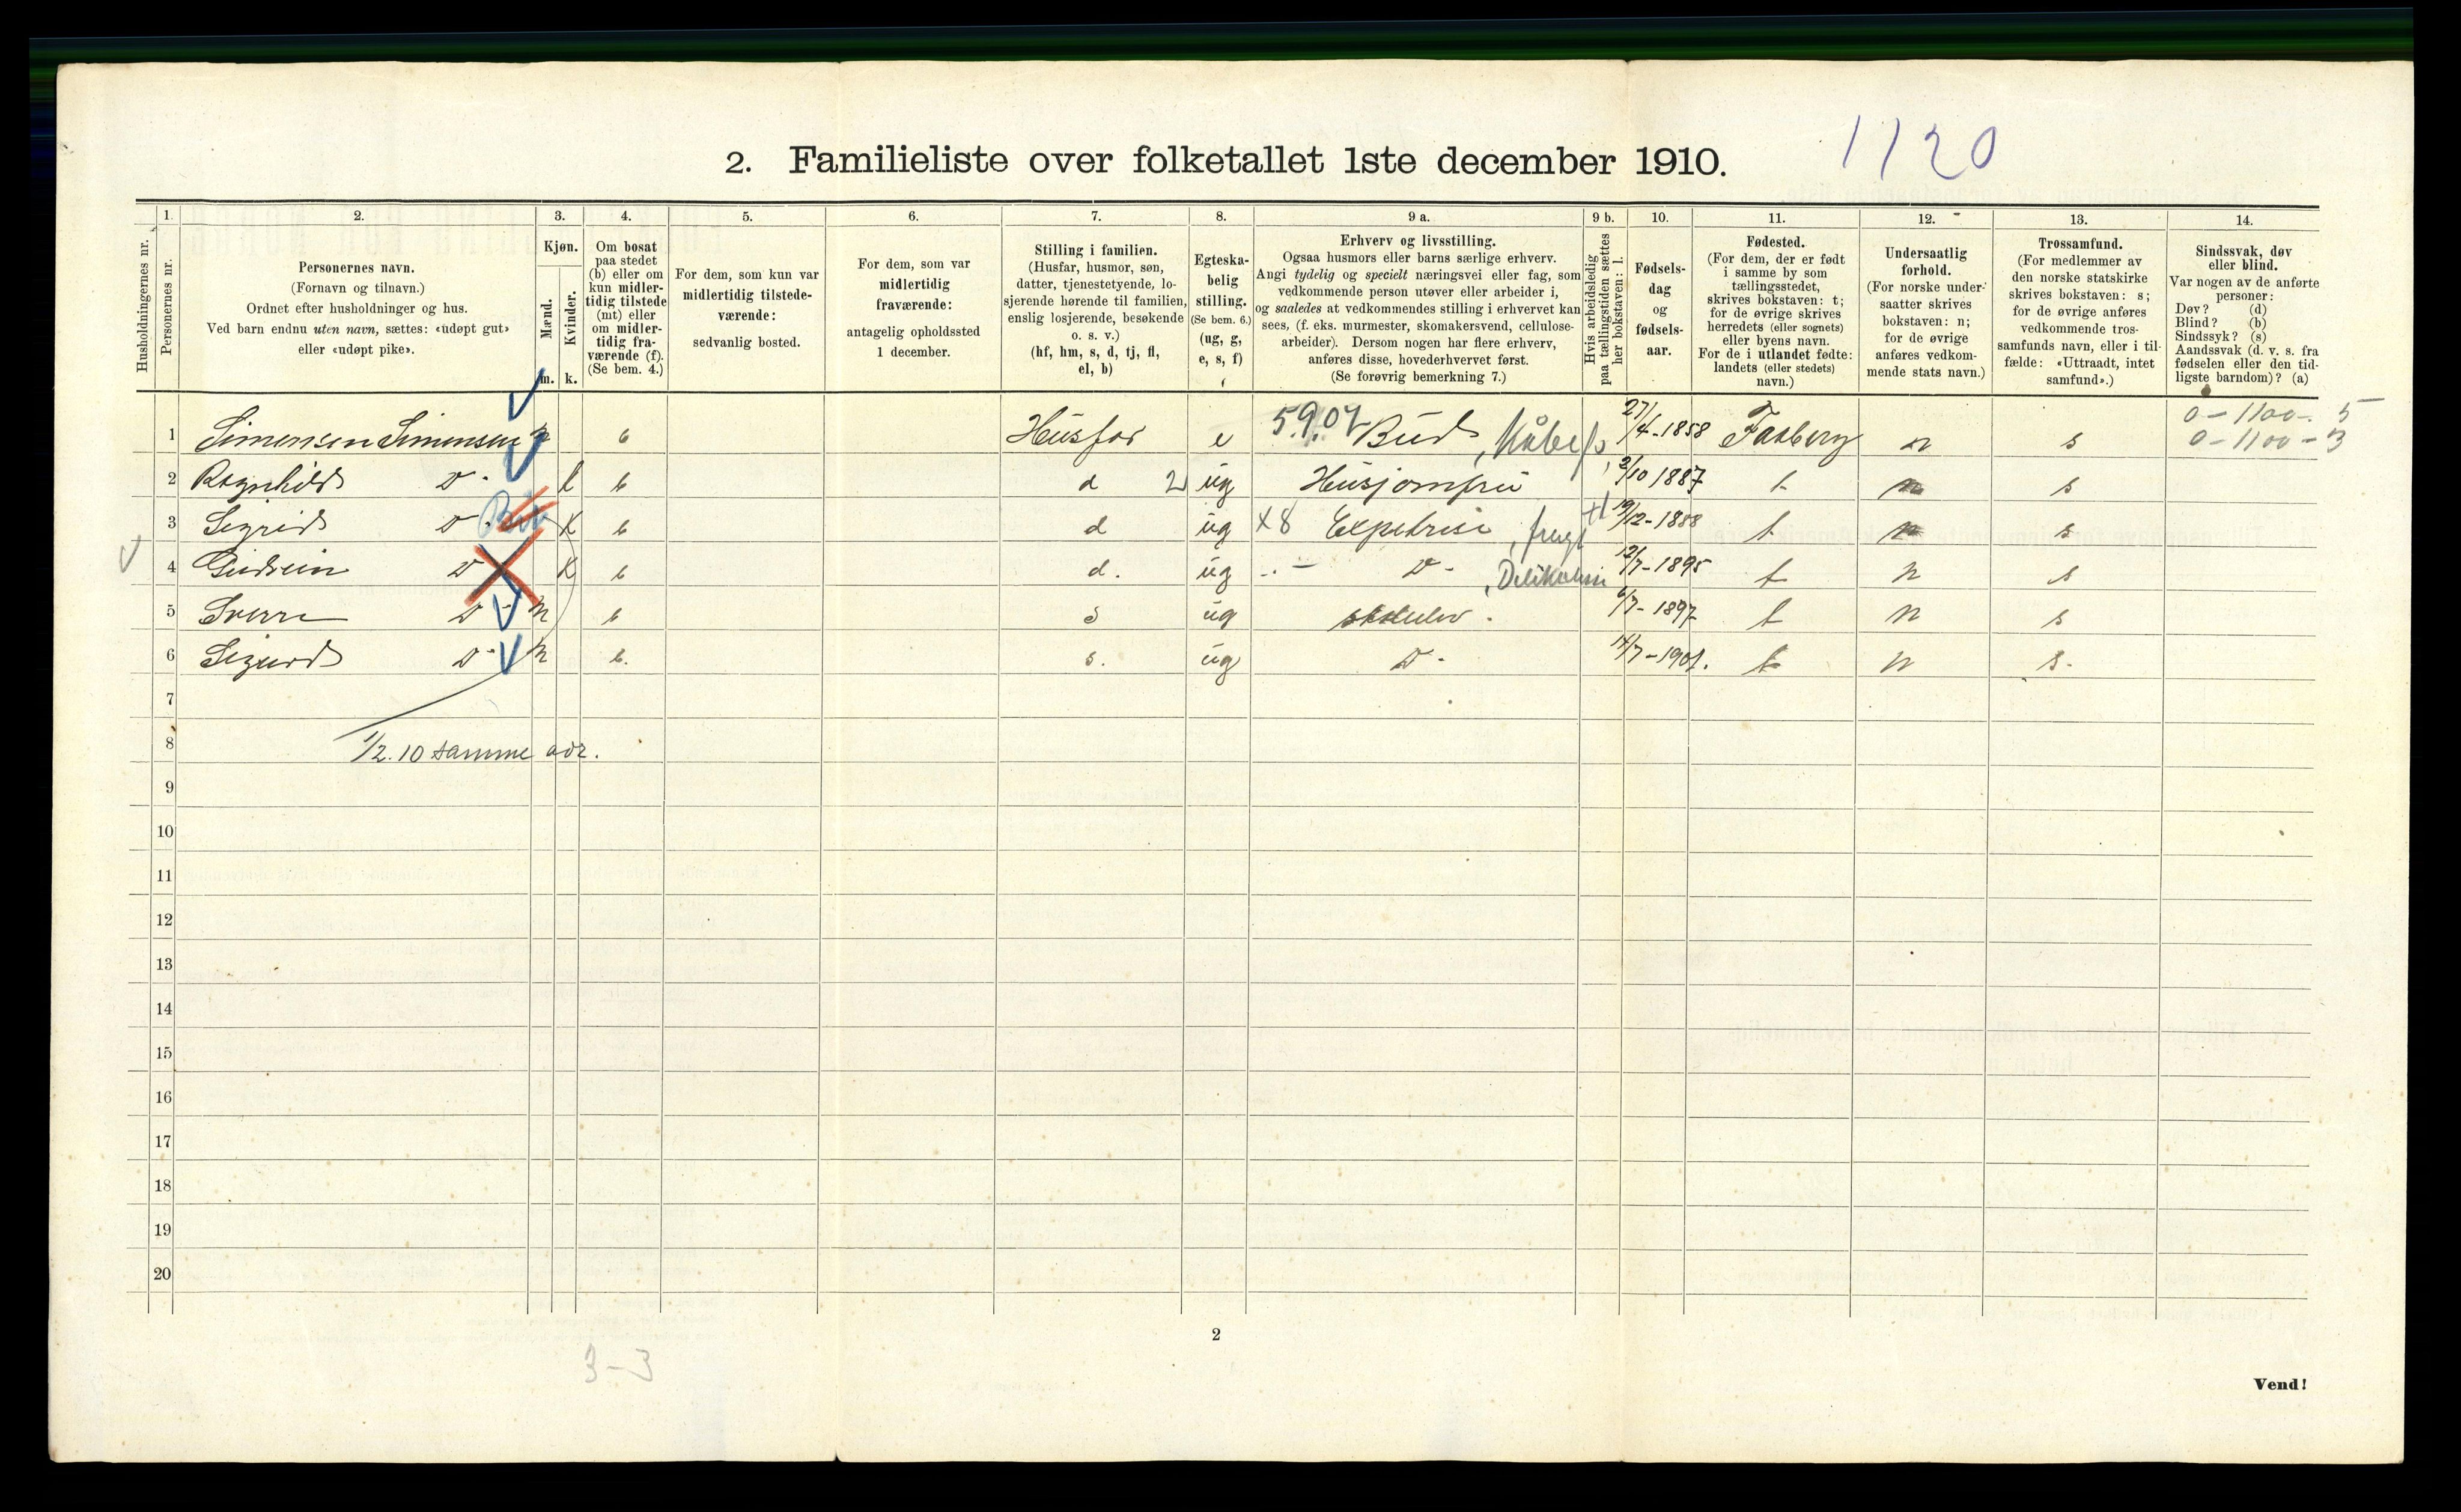 1120
2. Familieliste over folketallet 1ste december 1910.
Husholdningernes nr.
1.
Personernes nr.
2.
Personernes navn.
(Fornavn og tilnavn.)
Ordnet efter husholdninger og hus.
Ved barn endnu uten navn, sættes: «udøpt gut»
eller «udøpt pike».
3.
Kjøn.
Mænd.
Kvinder.
m. k.
4.
Om bosat
paa stedet
(b) eller om
kun midler-
tidig tilstede
(mt) eller
om midler-
tidig fra-
værende (f).
(Se bem. 4.)
5.
For dem, som kun var
midlertidig tilstede-
værende:
sedvanlig bosted.
6.
For dem, som var
midlertidig
fraværende:
antagelig opholdssted
1 december.
7.
Stilling i familien.
(Husfar, husmor, søn,
datter, tjenestetyende, lo-
sjerende hørende til familien,
enslig losjerende, besøkende
o. s. v.)
(hf, hm, s, d, tj, fl,
el, b)
8.
Egteska-
belig
stilling.
(Se bem. 6.)
(ug, g,
e, s, f)
9 a.
Erhverv og livsstilling.
Ogsaa husmors eller barns særlige erhverv.
Angi tydelig og specielt næringsvei eller fag, som
vedkommende person utøver eller arbeider i,
og saaledes at vedkommendes stilling i erhvervet kan
sees, (f. eks. murmester, skomakersvend, cellulose-
arbeider). Dersom nogen har flere erhverv,
anføres disse, hovederhvervet først.
(Se forøvrig bemerkning 7.)
9 b.
Hvis arbeidsledig
paa tællingstiden sættes
her bokstaven: l.
10.
Fødsels-
dag
og
fødsels-
aar.
11.
Fødested.
(For dem, der er født
i samme by som
tællingsstedet,
skrives bokstaven: t;
for de øvrige skrives
herredets (eller sognets)
eller byens navn.
For de i utlandet fødte:
landets (eller stedets)
navn.)
12.
Undersaatlig
forhold.
(For norske under-
saatter skrives
bokstaven: n;
for de øvrige
anføres vedkom-
mende stats navn.)
13.
Trossamfund.
(For medlemmer av
den norske statskirke
skrives bokstaven: s;
for de øvrige anføres
vedkommende tros-
samfunds navn, eller i til-
fælde: «Uttraadt, intet
samfund».)
14.
Sindssvak, døv
eller blind.
Var nogen av de anførte
personer:
Døv? (d)
Blind? (b)
Sindssyk? (s)
Aandssvak (d. v. s. fra
fødselen eller den tid-
ligste barndom)? (a)
0-1100-5
1 Simensen Simensen m b Husfar e 59.07 Bud 27/4-1858 Faaberg n s 0-1100-3
2 Ragnhild D- k b d 2 ug Husjomfru 2/10 1887 t n s
3 Sigrid D- k b d ug X8 Expetrise, frugt 19/12-1888 t n s
4 Gudrun D k b d. ug -.- D-, Delikatesse 12/7-1895 t n s
5 Sverre D- m b s ug skoleelev. 6/7-1897 t n s
6 Sigurd D- m b. s. ug D- 14/7-1901. t n s.
7
8 1/2.10 samme adr.
9
10
11
12
13
14
15
16
17
18
19
20
2
3-3
Vend!